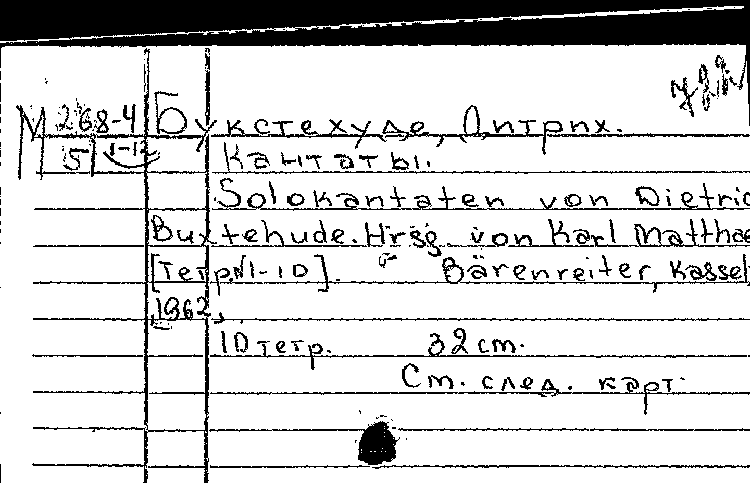 М 268-4 Букстехуде, Дитрих.
5 1-12 Кантаты.
Solokantaten von Dietric
Buxtehude. Hrsg. von Karl Matthae
[Тетр.№1-10]. Bärenreiter, Kassel
1962,
10 тетр. 32 cm.
См. след. карт.